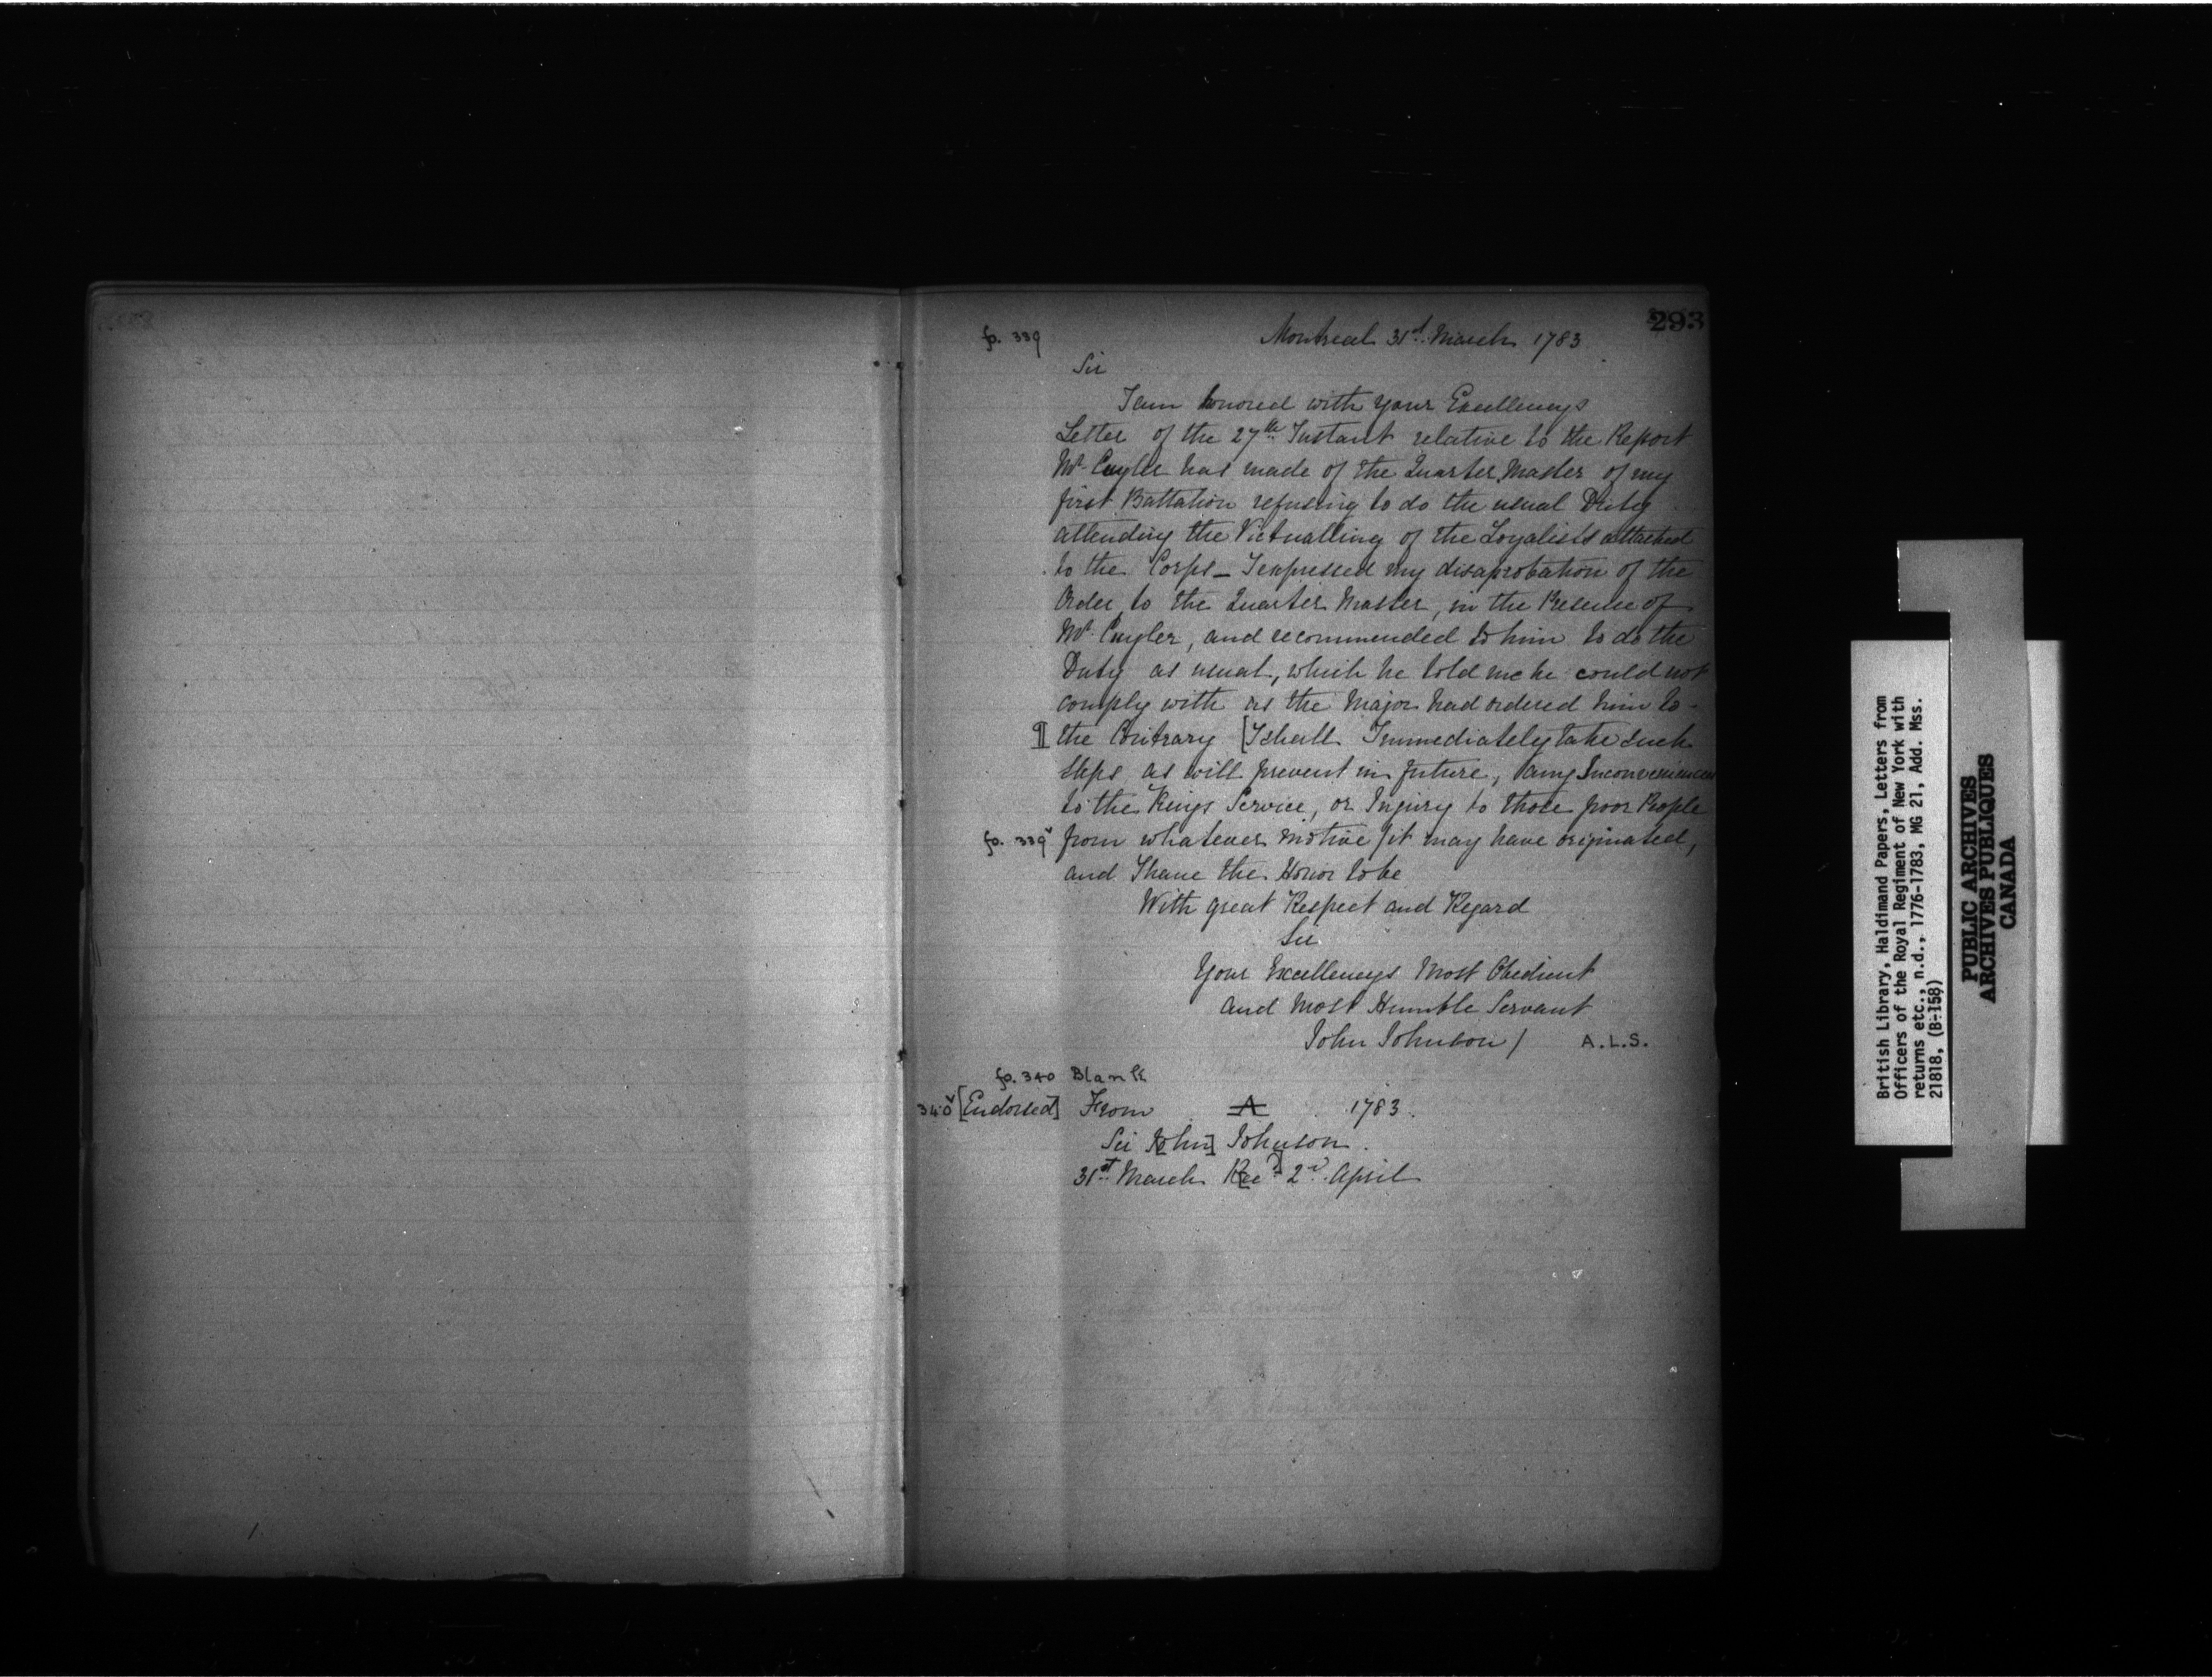 293
fo. 339
Montreal 31st March 1783
Sir
I am honored with your Excellencys
Letter of the 27th Instant relative to the Report
Mr Cuyler has made of the Quarter Master of my
first Battation refusing to do the usual Duty
attending the Victualling of the Loyalists attached
to the Corps_ I expressed my disaprobation of the
Order, to the Quarter Master, in the Presence of
Mr Cuyler, and recommended to him to do the
Duty as usual, which he told me he could not
comply with as the Major had ordered him to-
¶ the Contrary [I shall Immediately take such
steps as will prevent in future, any Inconvenience
to the Kings Service, or Injury to those poor People
fo. 339v from whatever motive / it may have originated,
and I have the Honor to be
With great Respect and Regard
Sir
Your Excellencys Most Obedient
and most Humble Servant
John Johnson / A.L.S.
fo. 340 Blank
340v [Endorsed] From A 1783.
Sir J[ohn] Johnson.
31st March R[ec'd] 2d April
British Library, Haldimand Papers, Letters from
Officers of the Royal Regiment of New York with
returns etc., n.d., 1776-1783, MG 21, Add. Mss.
21818, (B-158)
PUBLIC ARCHIVES
ARCHIVES PUBLIQUES
CANADA